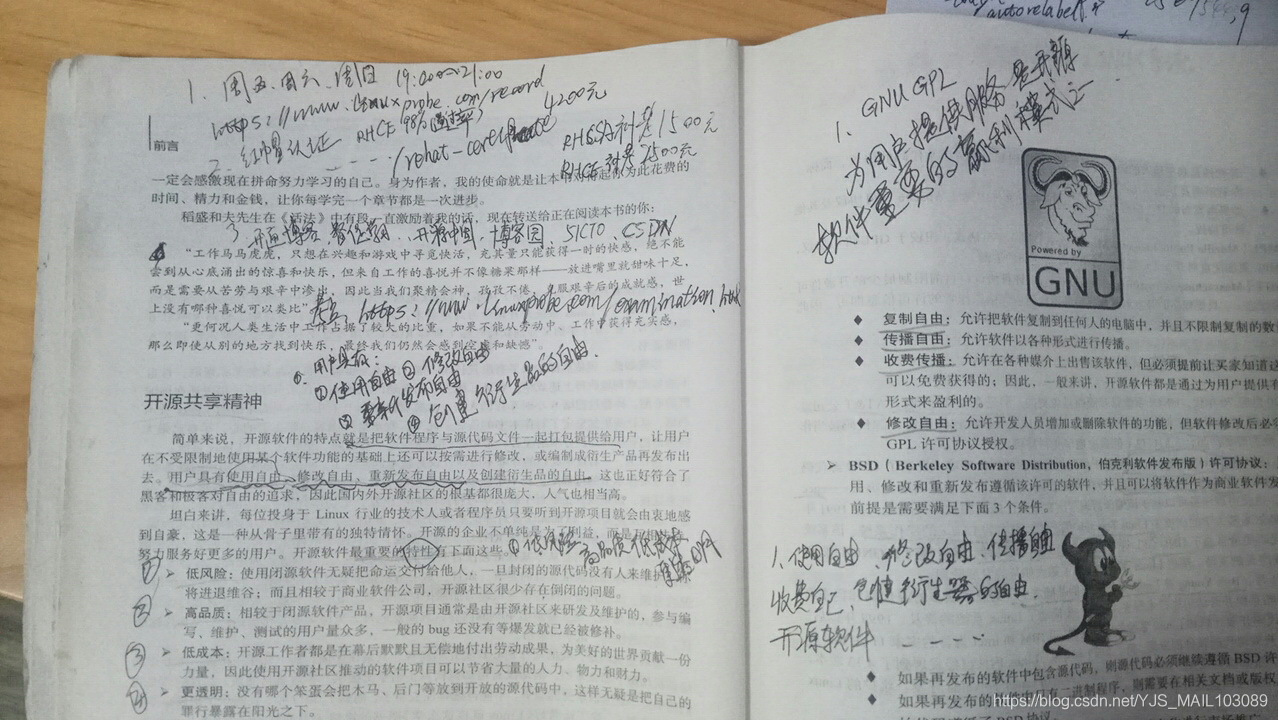 autorelabel
1. 周五、周六、周日 19:00~21:00
https://www.linuxprobe.com/record
前言
2. 红帽认证 RHCE 98%(通过率) 4200元
RHCSA补是1500元
RHCE 补是2500元
一定会感激现在拼命努力学习的自己。身为作者，我的使命就是让本书对得起你为此花费的
时间、精力和金钱，让你每学完一个章节都是一次进步。
稻盛和夫先生在《活法》中有段一直激励着我的话，现在转送给正在阅读本书的你：
3. 开通博客 开源中国、博客园 51CTO、CSDN
“工作马马虎虎，只想在兴趣和游戏中寻觅快活，充其量只能获得一时的快感，绝不能
尝到从心底涌出的惊喜和快乐，但来自工作的喜悦并不像糖果那样——放进嘴里就甜味十足，
而是需要从苦劳与艰辛中渗出，因此当我们聚精会神，孜孜不倦，克服艰辛后的成就感，世
上没有哪种喜悦可以类比”
https://www.linuxprobe.com/examination.html
“更何况人类生活中工作占据了较大的比重，如果不能从劳动中、工作中获得充实感，
那么即使从别的地方找到快乐，最终我们仍然会感到空虚和缺憾”。
用户具有：
①使用自由 ②修改自由
③重新发布自由
④创建衍生品的自由.
开源共享精神
简单来说，开源软件的特点就是把软件程序与源代码文件一起打包提供给用户，让用户
在不受限制地使用某个软件功能的基础上还可以按需进行修改，或编制成衍生产品再发布出
去。用户具有使用自由、修改自由、重新发布自由以及创建衍生品的自由。这也正好符合了
黑客和极客对自由的追求，因此国内外开源社区的根基都很庞大，人气也相当高。
坦白来讲，每位投身于 Linux 行业的技术人或者程序员只要听到开源项目就会由衷地感
到自豪，这是一种从骨子里带有的独特情怀。开源的企业不单纯是为了利益，而是
努力服务好更多的用户。开源软件最重要的特性有下面这些。
①低风险 高品质 低成本
更透明
① 低风险：使用闭源软件无疑把命运交付给他人，一旦封闭的源代码没有人来维护，你
将进退维谷；而且相较于商业软件公司，开源社区很少存在倒闭的问题。
② 高品质：相较于闭源软件产品，开源项目通常是由开源社区来研发及维护的，参与编
写、维护、测试的用户量众多，一般的 bug 还没有等爆发就已经被修补。
③ 低成本：开源工作者都是在幕后默默且无偿地付出劳动成果，为美好的世界贡献一份
力量，因此使用开源社区推动的软件项目可以节省大量的人力、物力和财力。
④ 更透明：没有哪个笨蛋会把木马、后门等放到开放的源代码中，这样无疑是把自己的
罪行暴露在阳光之下。
1. GNU GPL
为用户提供服务是开源
软件重要的赢利模式之一
Powered by
GNU
◆ 复制自由：允许把软件复制到任何人的电脑中，并且不限制复制的数
◆ 传播自由：允许软件以各种形式进行传播。
◆ 收费传播：允许在各种媒介上出售该软件，但必须提前让买家知道这
可以免费获得的；因此，一般来讲，开源软件都是通过为用户提供有
形式来盈利的。
◆ 修改自由：允许开发人员增加或删除软件的功能，但软件修改后必
GPL 许可协议授权。
➢ BSD（Berkeley Software Distribution，伯克利软件发布版）许可协议：
用、修改和重新发布遵循该许可的软件，并且可以将软件作为商业软件发
前提是需要满足下面 3 个条件。
1、使用自由、修改自由、传播自由
收费 创建衍生 的自由.
开源软件 ----
◆ 如果再发布的软件中包含源代码，则源代码必须继续遵循 BSD 许
◆ 如果再发布的软件中只有二进制程序，则需要在相关文档或版权
BSD 协议。
https://blog.csdn.net/YJS_MAIL103089